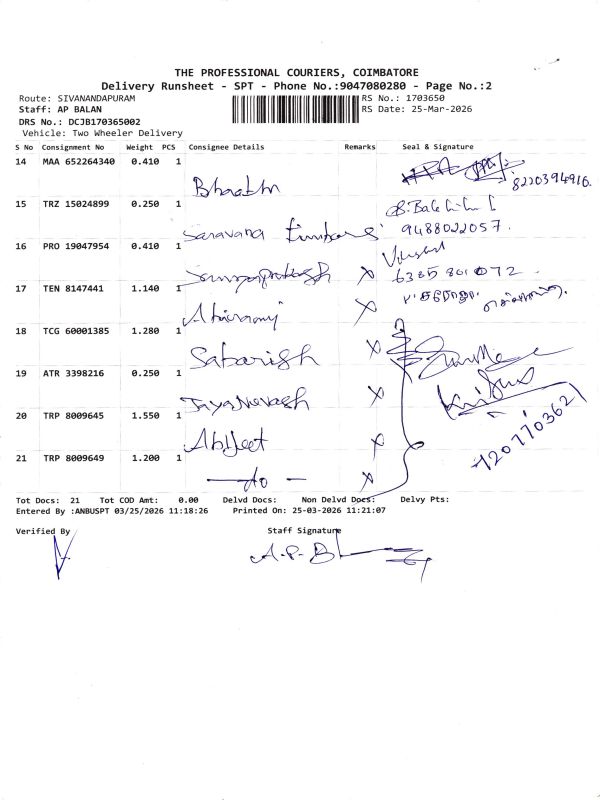 THE PROFESSIONAL COURIERS, COIMBATORE
Delivery Runsheet - SPT - Phone No.:9047080280 - Page No.:2
Route: SIVANANDAPURAM
Staff: AP BALAN
DRS No.: DCJB170365002
Vehicle: Two Wheeler Delivery
RS No.: 1703650
RS Date: 25-Mar-2026
S No Consignment No Weight PCS Consignee Details Remarks Seal & Signature
14 MAA 652264340 0.410 1
8220394916.
15 TRZ 15024899 0.250 1 Saravana
9488022057.
16 PRO 19047954 0.410 1 X
6385801072
17 TEN 8147441 1.140 1 X
18 TCG 60001385 1.280 1 Sabarish X
19 ATR 3398216 0.250 1 X
20 TRP 8009645 1.550 1 Abijeet X
21 TRP 8009649 1.200 1 — do — X
Tot Docs: 21 Tot COD Amt: 0.00 Delvd Docs: Non Delvd Docs: Delvy Pts:
Entered By :ANBUSPT 03/25/2026 11:18:26 Printed On: 25-03-2026 11:21:07
Verified By Staff Signature
A.P.B